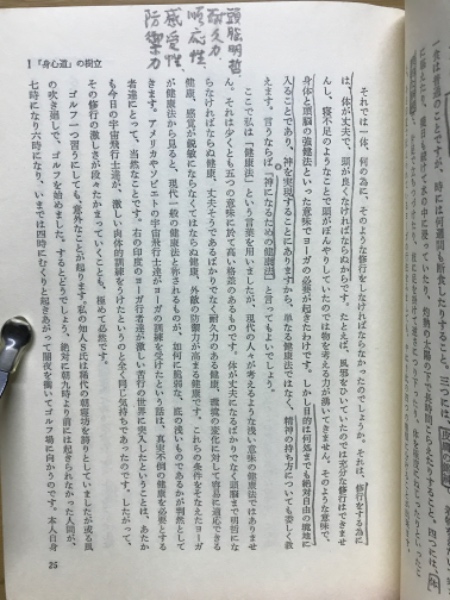 頭脳明哲
耐久力
順応性
感受性
防禦力
食は普通のことですが、時には何週間も断食したりすること。三つには、
灼熱の太陽の下で長時間
四つには、
それでは一体、何の為に、そのような修行をしなければならないのでしょうか。それは、修行をする為に
は、体が丈夫で、頭が良くなければならぬからです。たとえば、風邪をひいていたのでは充分な修行はできませ
んし、寝不足のようなことで頭がぼんやりしていたのでは物を考える力が湧いてきません。そのような意味で、
身体と頭脳の強健法といった意味でヨーガの必要が起きたわけです。しかし目的は何処までも絶対自由の境地に
入ることであり、神を実現することにありますから、単なる健康法ではなく、精神の持ち方についても委しく教
えます。言うならば『神になるための健康法』と言ってもよいでしょう。
ここで私は「健康法」という言葉を用いましたが、現代の人々が考えるような浅い意味の健康法ではありませ
ん。それは少くとも五つの意味に於て高い格差のあるものです。体が丈夫になるばかりでなく頭脳まで明哲にな
らなければならぬ健康、丈夫そうであるばかりでなく耐久力のある健康、環境の変化に対して容易に適応できる
健康、感覚が鋭敏にならなくてはならぬ健康、外敵の防禦力が高まる健康です。これらの条件をそなえたヨーガ
が健康法から見ると、現代一般の健康法と称されるものが、如何に脆弱な、底の浅いものであるかが判然として
きます。アメリカやソビエトの宇宙飛行士達がヨーガの訓練を受けたという話は、真実不倒の健康を必要とする
者達にとって、当然なことです。右の印度のヨーガ行者達が激しい苦行の世界に突入したということは、あたか
も今日の宇宙飛行士達が、激しい肉体的訓練をうけたというのと全く同じ気持ちであったのです。したがって、
その修行の激しさが段々たかまっていくことも、極めて必然です。
ゴルフ一つ習うにしても、意外なことが起ります。私の知人S氏は稀代の朝寝坊を誇りとしていましたが或る風
の吹き廻しで、ゴルフを始めました。するとどうでしょう。絶対に朝九時より前には起きられなかった人間が、
七時になり六時になり、いまでは四時にむくりと起きあがって闇夜を衝いてゴルフ場に向かうのです。本人自身
1 『身心道』の樹立
25